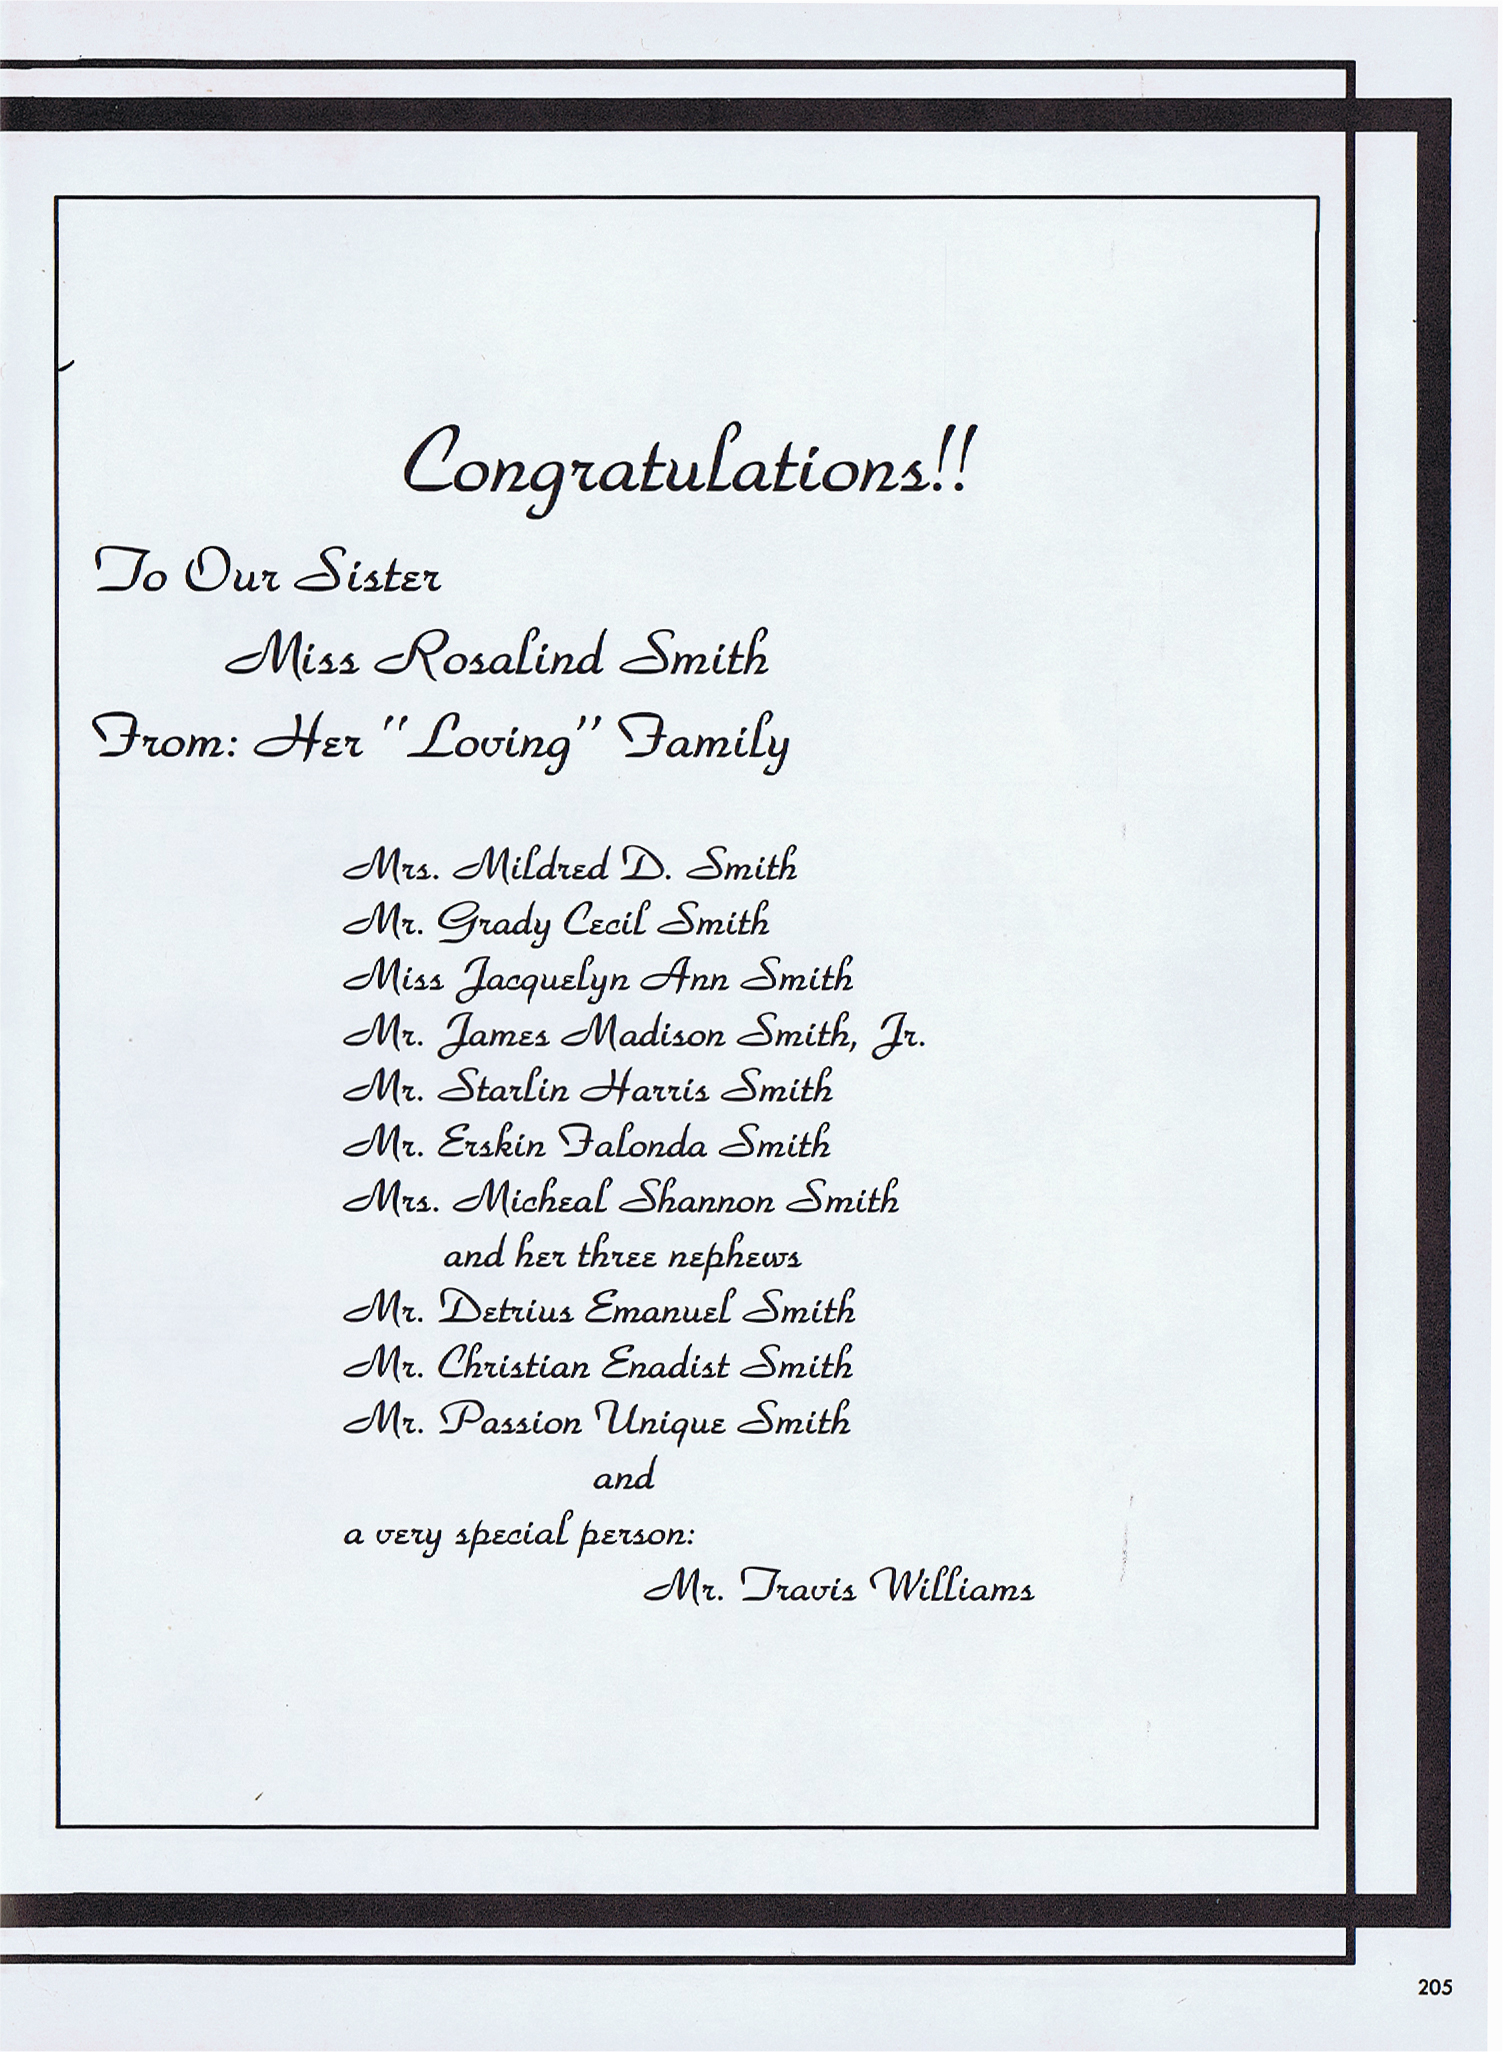 Congratulations!!
To Our Sister
Miss Rosalind Smith
From: Her "Loving" Family
Mrs. Mildred D. Smith
Mr. Grady Cecil Smith
Miss Jacquelyn Ann Smith
Mr. James Madison Smith, Jr.
Mr. Starlin Harris Smith
Mr. Erskin Falonda Smith
Mrs. Micheal Shannon Smith
and her three nephews
Mr. Detrius Emanuel Smith
Mr. Christian Enadist Smith
Mr. Passion Unique Smith
and
a very special person:
Mr. Travis Williams
205